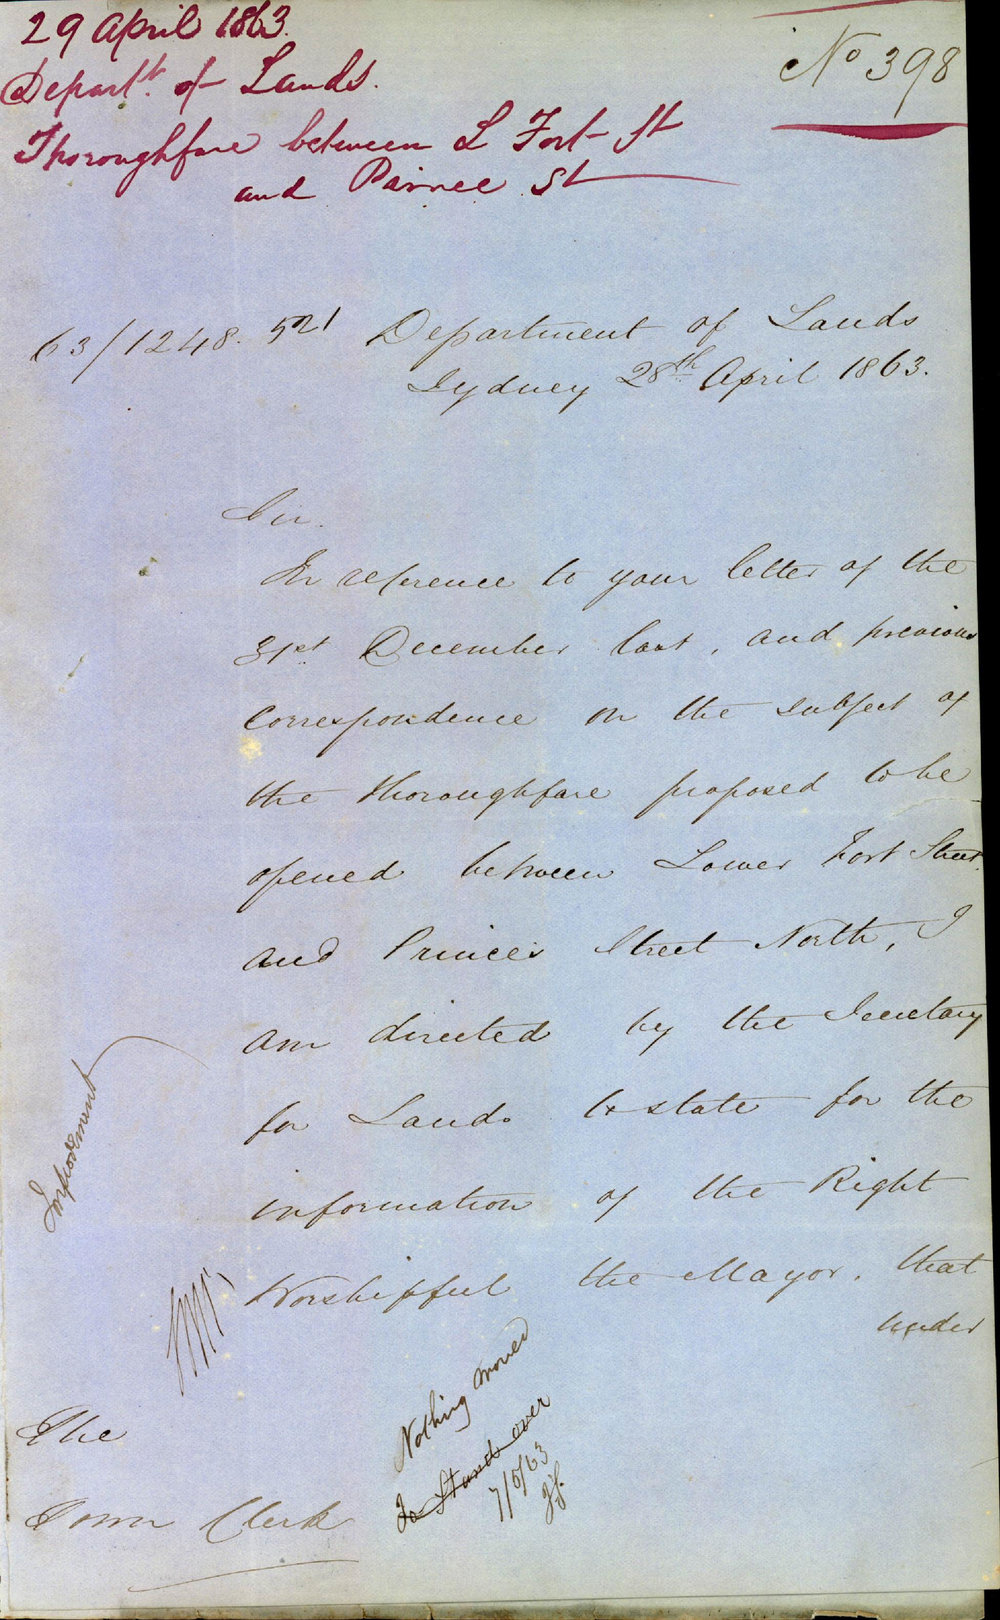 29 April 1863.
Depart.t of Lands.
Thoroughfare between L Fort St
and Prince St
No 398
63/1248. 521
Department of Lands
Sydney 28th April 1863.
Sir.
In reference to your letter of the
31st December last, and previous
correspondence on the subject of
the thoroughfare proposed to be
opened between Lower Fort Street
and Princes Street North, I
am directed by the Secretary
for Lands to state for the
information of the Right
Worshipful the Mayor, that
under
Improvement
Nothing moved
To Stand over
7/5/63
The
Town Clerk